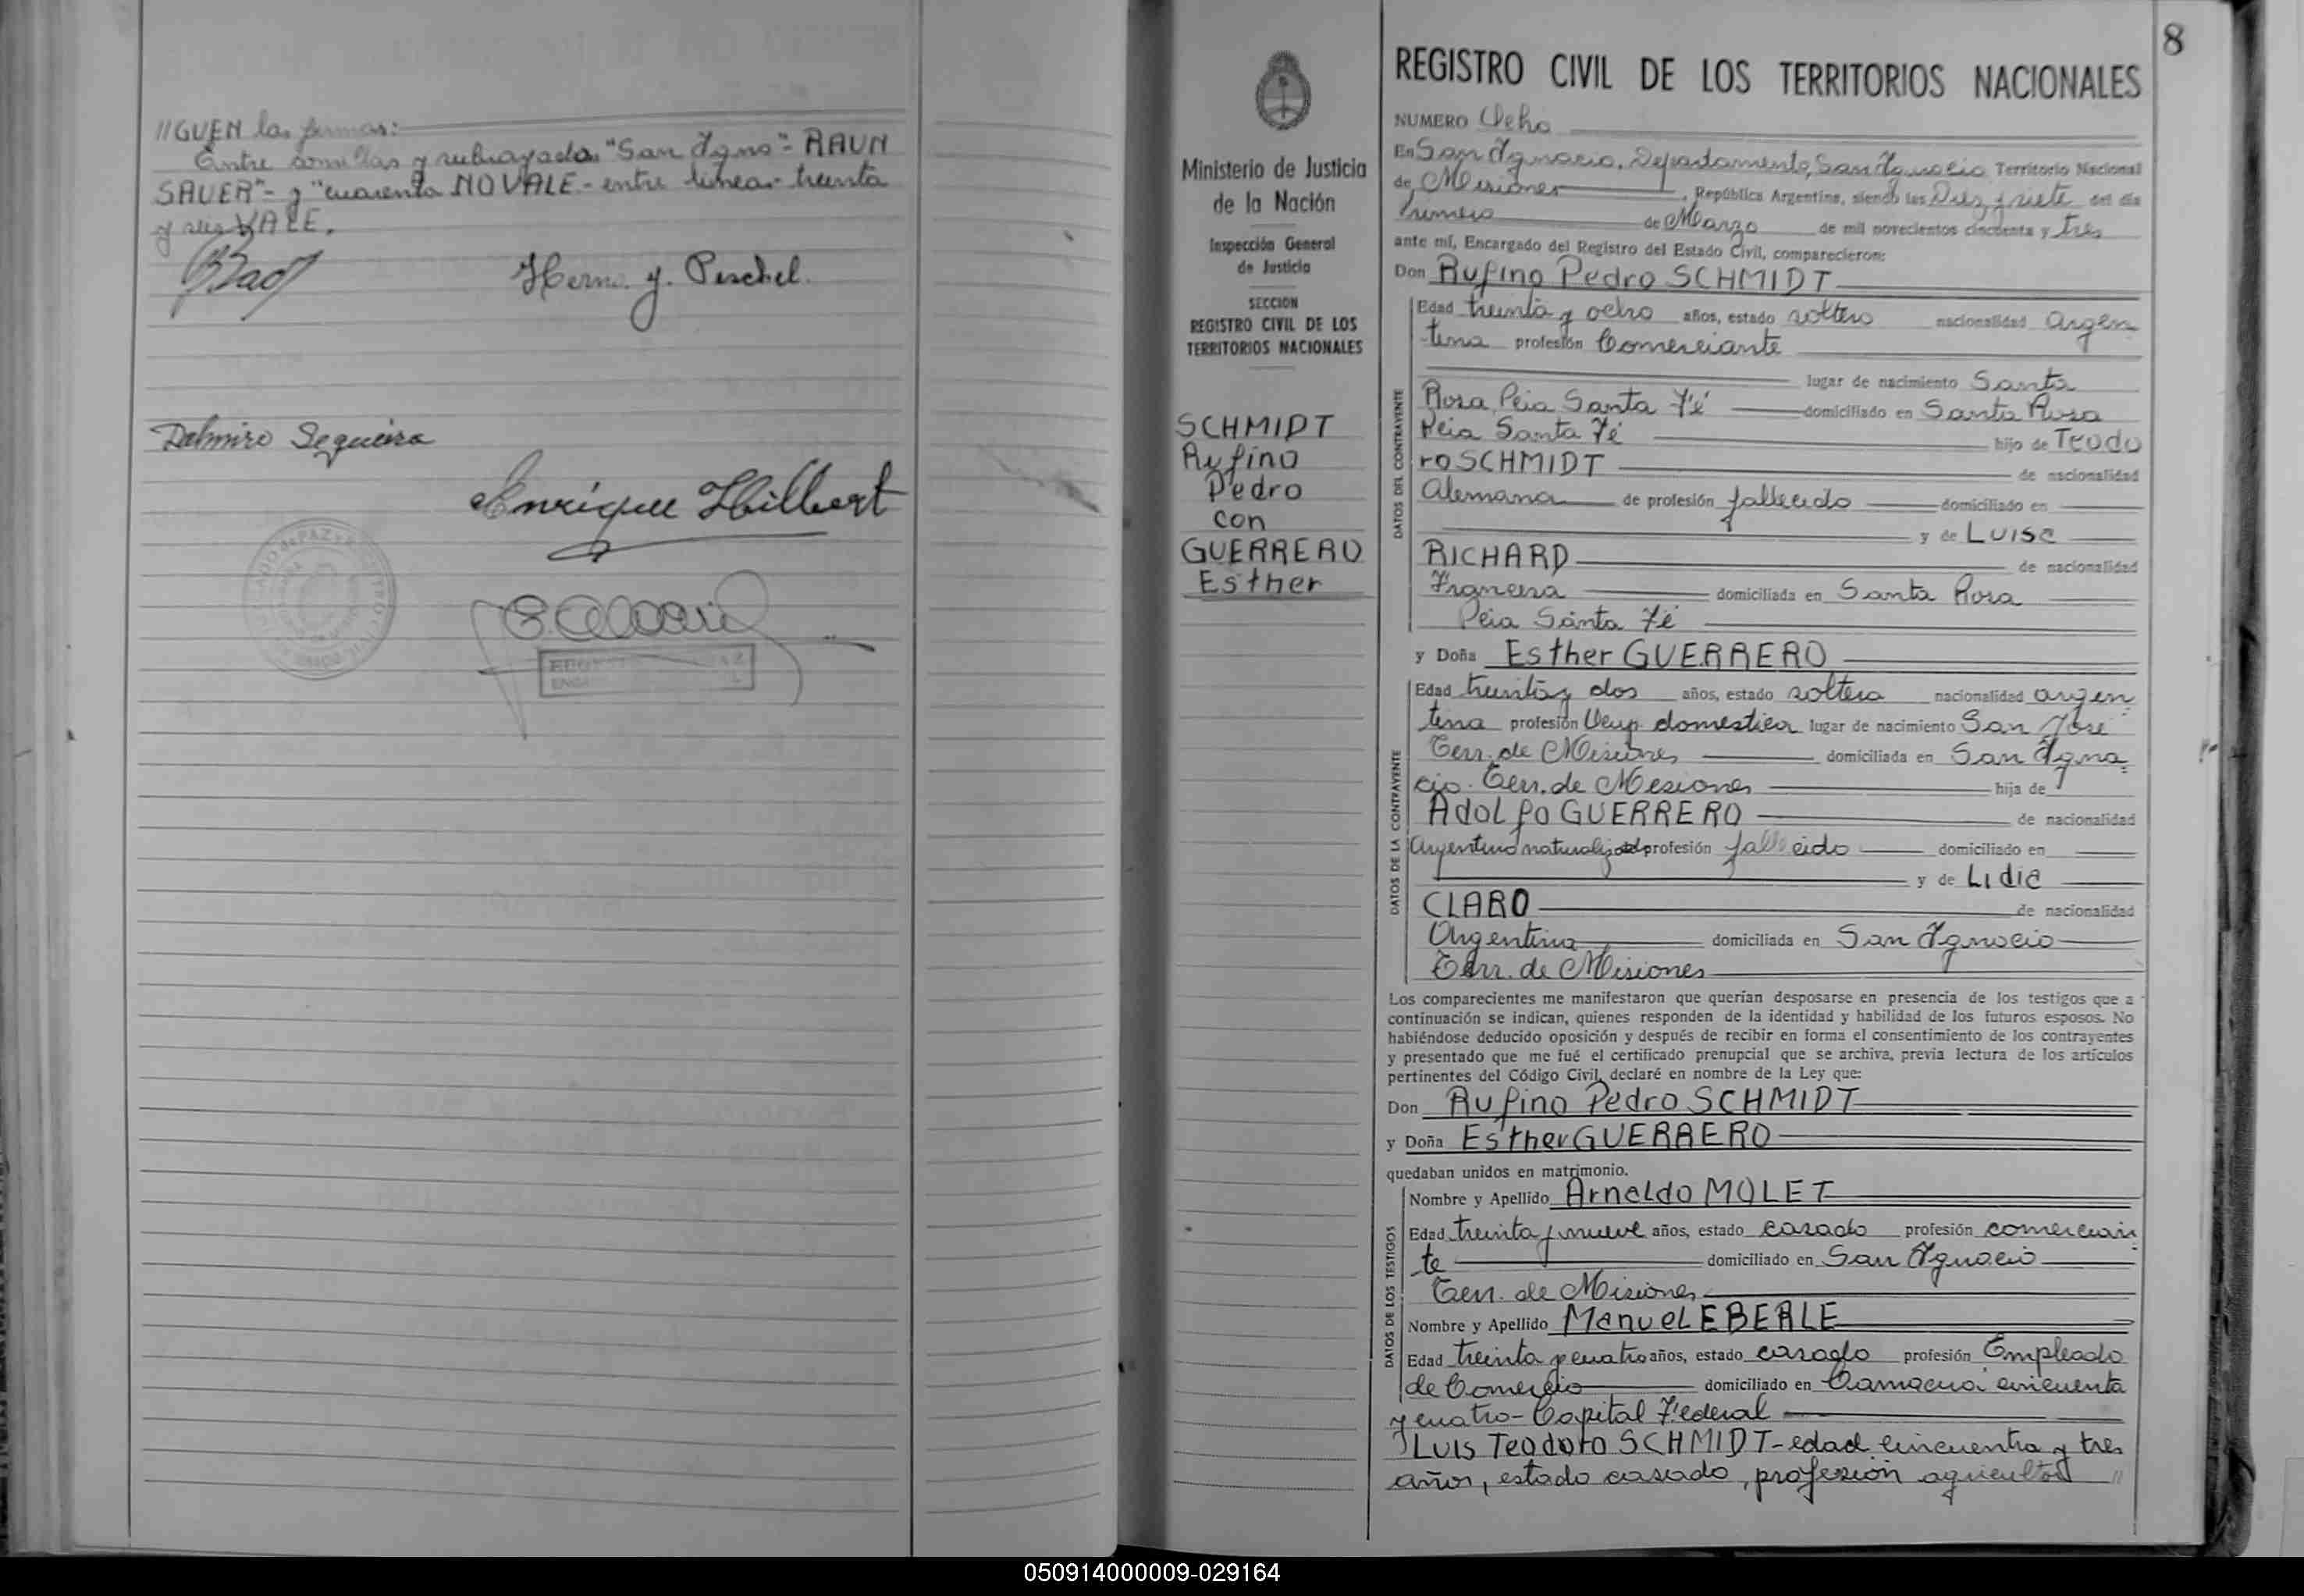 //GUEN las firmas:
Entre comillas y subrayado "San Igno"- RAUN
SAUER"- y "cuarenta NO VALE.- entre lineas- treinta
y seis VALE.
Herm. y. Peschel.
Delmiro Sequeira
Enrique Hilbert
8
REGISTRO CIVIL DE LOS TERRITORIOS NACIONALES
NUMERO Ocho
En San Ignacio, Departamento San Ignacio Territorio Nacional
de Misiones, República Argentina, siendo las Diez y siete del día
Primero de Marzo de mil novecientos cincuenta y tres
ante mí, Encargado del Registro del Estado Civil, comparecieron:
Don Rufino Pedro SCHMIDT
Edad treinta y ocho años, estado soltero nacionalidad argen
tina profesión Comerciante
lugar de nacimiento Santa
Rosa, Pcia Santa Fé domiciliado en Santa Rosa
Pcia Santa Fé hijo de Teodo
ro SCHMIDT de nacionalidad
Alemana de profesión fallecido domiciliado en
y de Luisa
RICHARD de nacionalidad
Francesa domiciliada en Santa Rosa
Pcia Santa Fé
y Doña Esther GUERRERO
Edad treinta y dos años, estado soltera nacionalidad argen
tina profesión Ocup. domestica lugar de nacimiento San José
Terr. de Misiones domiciliada en San Igna
cio. Terr. de Misiones hija de
Adolfo GUERRERO de nacionalidad
Argentino naturalizado profesión fallecido domiciliado en
y de Lidia
CLARO de nacionalidad
Argentina domiciliada en San Ignacio
Terr. de Misiones
Los comparecientes me manifestaron que querían desposarse en presencia de los testigos que a
continuación se indican, quienes responden de la identidad y habilidad de los futuros esposos. No
habiéndose deducido oposición y después de recibir en forma el consentimiento de los contrayentes
y presentado que me fué el certificado prenupcial que se archiva, previa lectura de los artículos
pertinentes del Código Civil, declaré en nombre de la Ley que:
Don Rufino Pedro SCHMIDT
y Doña Esther GUERRERO
quedaban unidos en matrimonio.
Nombre y Apellido Arnaldo MOLET
Edad treinta y nueve años, estado casado profesión comercian
te domiciliado en San Ignacio
Terr. de Misiones
Nombre y Apellido Manuel EBERLE
Edad treinta y cuatro años, estado casado profesión Empleado
de Comercio domiciliado en Camacuá cincuenta
y cuatro- Capital Federal
Luis Teodoro SCHMIDT- edad cincuenta y tres
años, estado casado, profesión agricultor //
DATOS DEL CONTRAYENTE
DATOS DE LA CONTRAYENTE
DATOS DE LOS TESTIGOS
Ministerio de Justicia
de la Nación
Inspección General
de Justicia
SECCION
REGISTRO CIVIL DE LOS
TERRITORIOS NACIONALES
SCHMIDT
Rufino
Pedro
con
GUERRERO
Esther
050914000009-029164